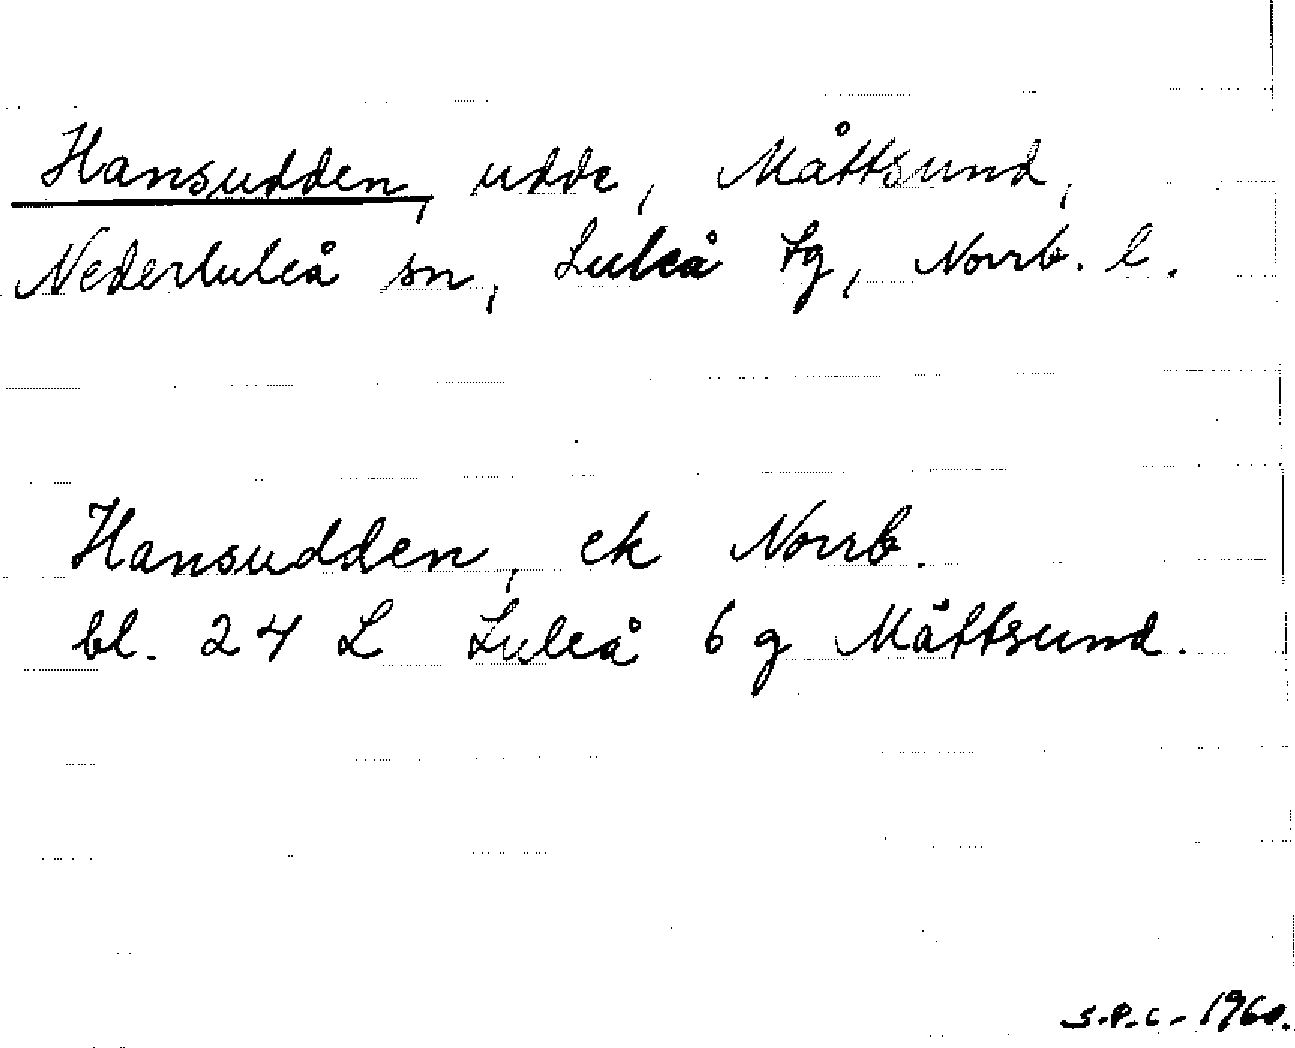 Hansudden, udde, Måttsund,
Nederluleå sn, Luleå tg, Norrb. l.
Hansudden, ek Norrb.
bl. 24 L Luleå 6 g Måttsund.
S.P.C. 1960.